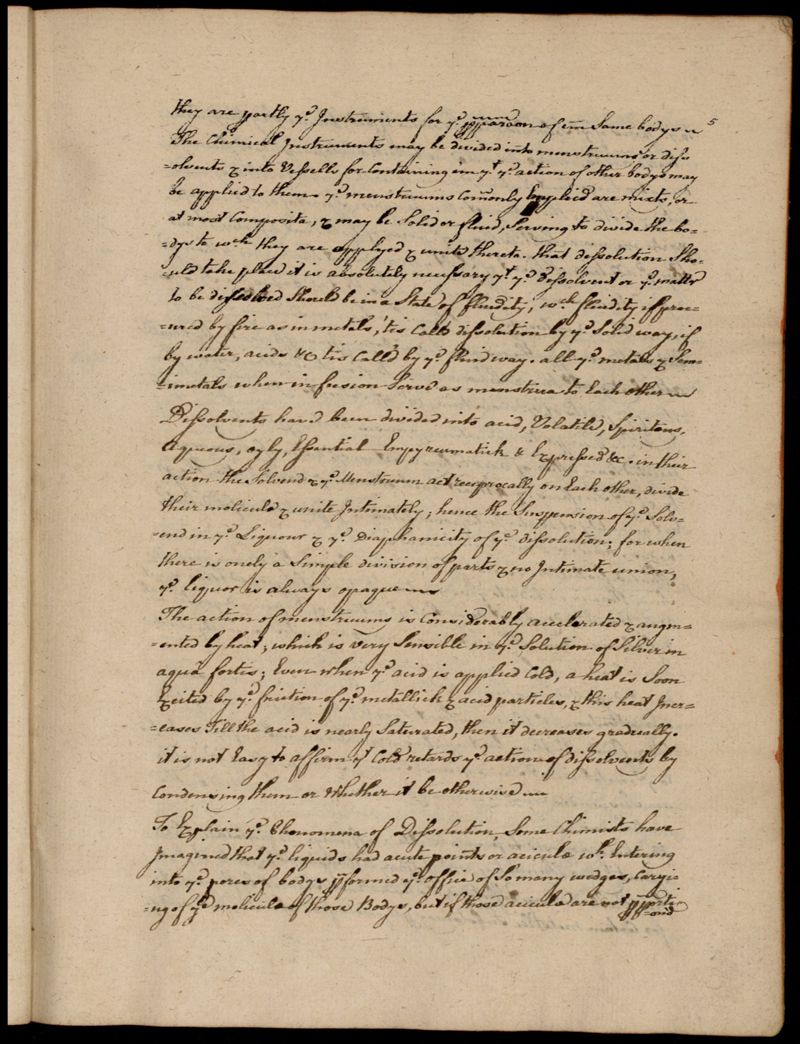 they are partly ye Instruments for ye pparāōn of em̄ Same bodys
5
The Chimical Instruments may be divided into menstruums or diss
=olvents & into Vessells for Containing em yt ye action of other bodys may
be applied to them. ye menstruums Com̄only Employed are mixts, or
at most Composita, & may be Solid or fluid, Serving to divide the bo-
=dys to wch they are applyed & unite thereto. that dissolution Sho-
=uld take place it is absolutely necessary yt ye dissolvent or ye matter
to be dissolved Should be in a State of fluidity; wch fluidity if proc-
=ured by fire as in metals, 'tis Calld dissolution by ye Solid way, if
by water, acids &c tis Call'd by ye fluid way. all ye metals & Sem-
=imetals when in fusion Serve as menstrua to Each other
Dissolvents have been divided into acid, Volatile, Spiritous,
Aqueous, oyly, Essential Empyreumatick & Expressed &c. in their
action the Solvend & ye Menstruum act reciprocally on Each other, divide
their molicule & unite Intimately; hence the Suspension of ye Solv-
=end in ye Liquour & ye Diaphanicity of ye dissolution; for when
there is onely a Simple division of parts & no Intimate union,
ye liquor is always opaque
The action of menstruums is Considerably accelerated & augm-
=ented by heat; which is very Sensible in ye Solution of Silver in
aqua fortis; Even when ye acid is applied Cold, a heat is Soon
Excited by ye friction of ye metallick & acid particles, & this heat Incr-
=eases Till the acid is nearly Saturated, then it decreases gradually.
it is not Easy to affirm yt Cold retards ye action of dissolvents by
Condensing them or Whether it be otherwise
To Explain ye Phenomena of Dissolution, Some Chimists have
Imagined that ye liquids had acute points or aciculæ wh. Entering
into ye pores of bodys pformed ye office of So many wedges, Caryi-
=ng of ye moliculæ of those Bodys, but if those aciculæ are not pporti
=ond